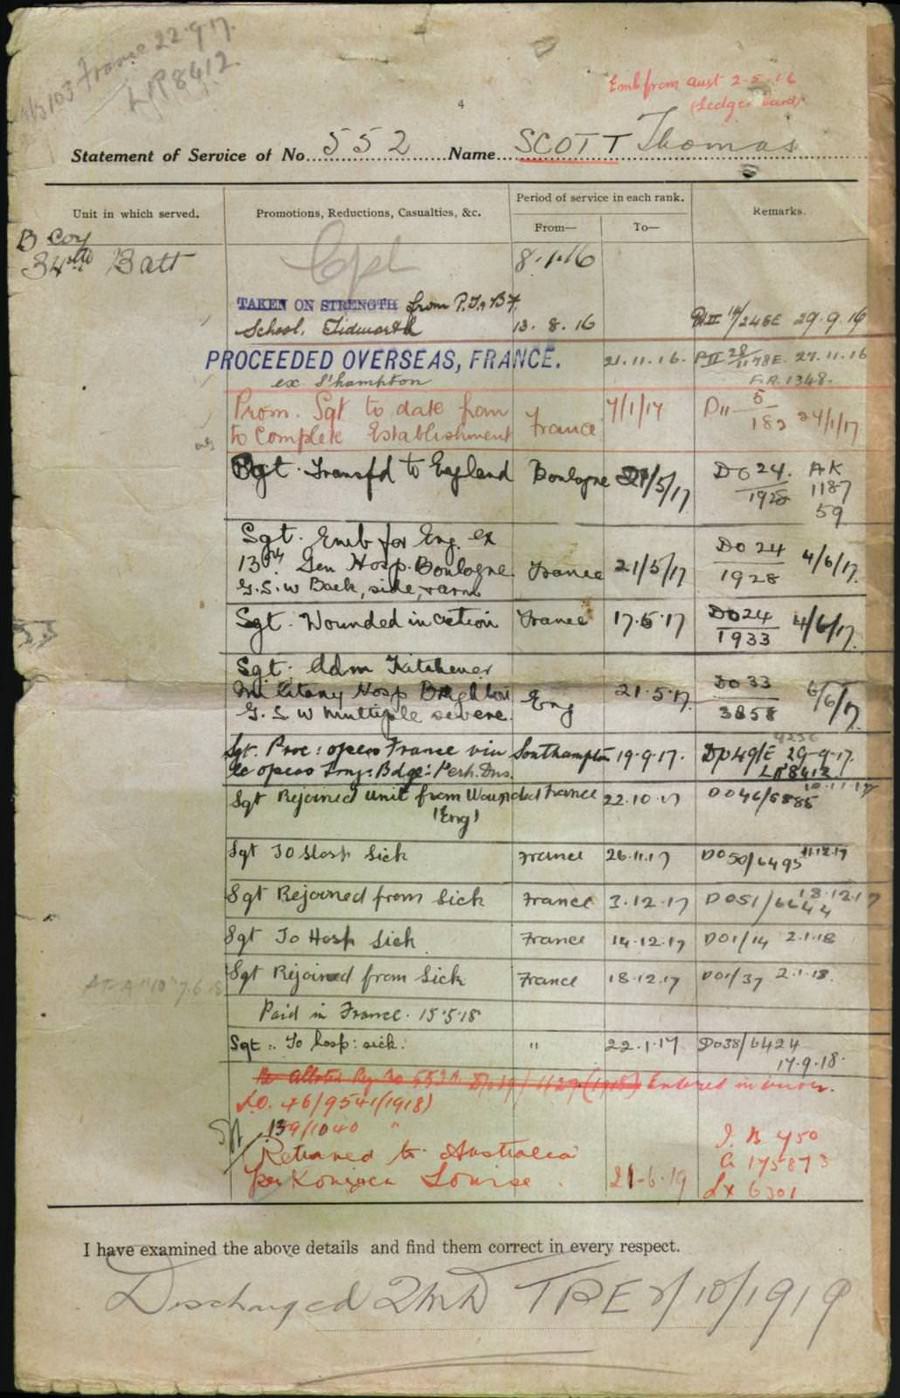 France 22.9.17.
LR8412
Emb from Aust 2-5-16
(Ledger Card)
4
Statement of Service of No. 552 Name SCOTT Thomas
Unit in which served. Promotions, Reductions, Casualties, &c. Period of service in each rank. Remarks.
From— To—
B Coy
34th Batt Cpl 8.1.16
TAKEN ON STRENGTH from P.T. & B.F.
School, Tidworth 13.8.16 29.9.16
PROCEEDED OVERSEAS, FRANCE. 21.11.16. 27.11.16
ex S'hampton F.R. 1348.
Prom. Sgt to date from France 7/1/17 D11 5/182 24/1/17
to complete Establishment
Sgt. Transfd to England Boulogne 21/5/17 DO 24. AK
1928 1187
59
Sgt. Emb for Eng. ex
13th Gen Hosp. Boulogne France 21/5/17 DO 24 4/6/17.
G.S.W Back, side, arm 1928
Sgt. Wounded in action France 17.5.17 DO 24 4/6/17.
1933
Sgt. Adm Kitchener
Military Hosp Brighton Eng 21.5.17. DO 33 6/6/17
G.S.W multiple severe. 3858
4236
Sgt. Proc: o'seas France via Southampton 19.9.17. DO49/E 29-9-17.
LR8412
10.11.17
Sgt Rejoined unit from Wounded France 22.10.17 DO46/5885
(Eng)
Sgt To Hosp Sick France 26.11.17 DO50/6495 11.12.17
Sgt Rejoined from Sick France 3.12.17 DO51/6644 18.12.17
Sgt To Hosp Sick France 14.12.17 DO1/14 2.1.18
Sgt Rejoined from Sick France 18.12.17 DO1/37 2.1.18.
Paid in France. 15.5.18
Sgt: To hosp: sick. " 22.1.17. DO38/6424
17.9.18.
Entered in error.
D.O. 46/9541(1918)
139/1040 "
Returned to Australia
per Konigin Louise. 21-6-19
J. B 450
A 175873
Lx 6301
I have examined the above details and find them correct in every respect.
Discharged 2nd MD TPE 2/10/1919